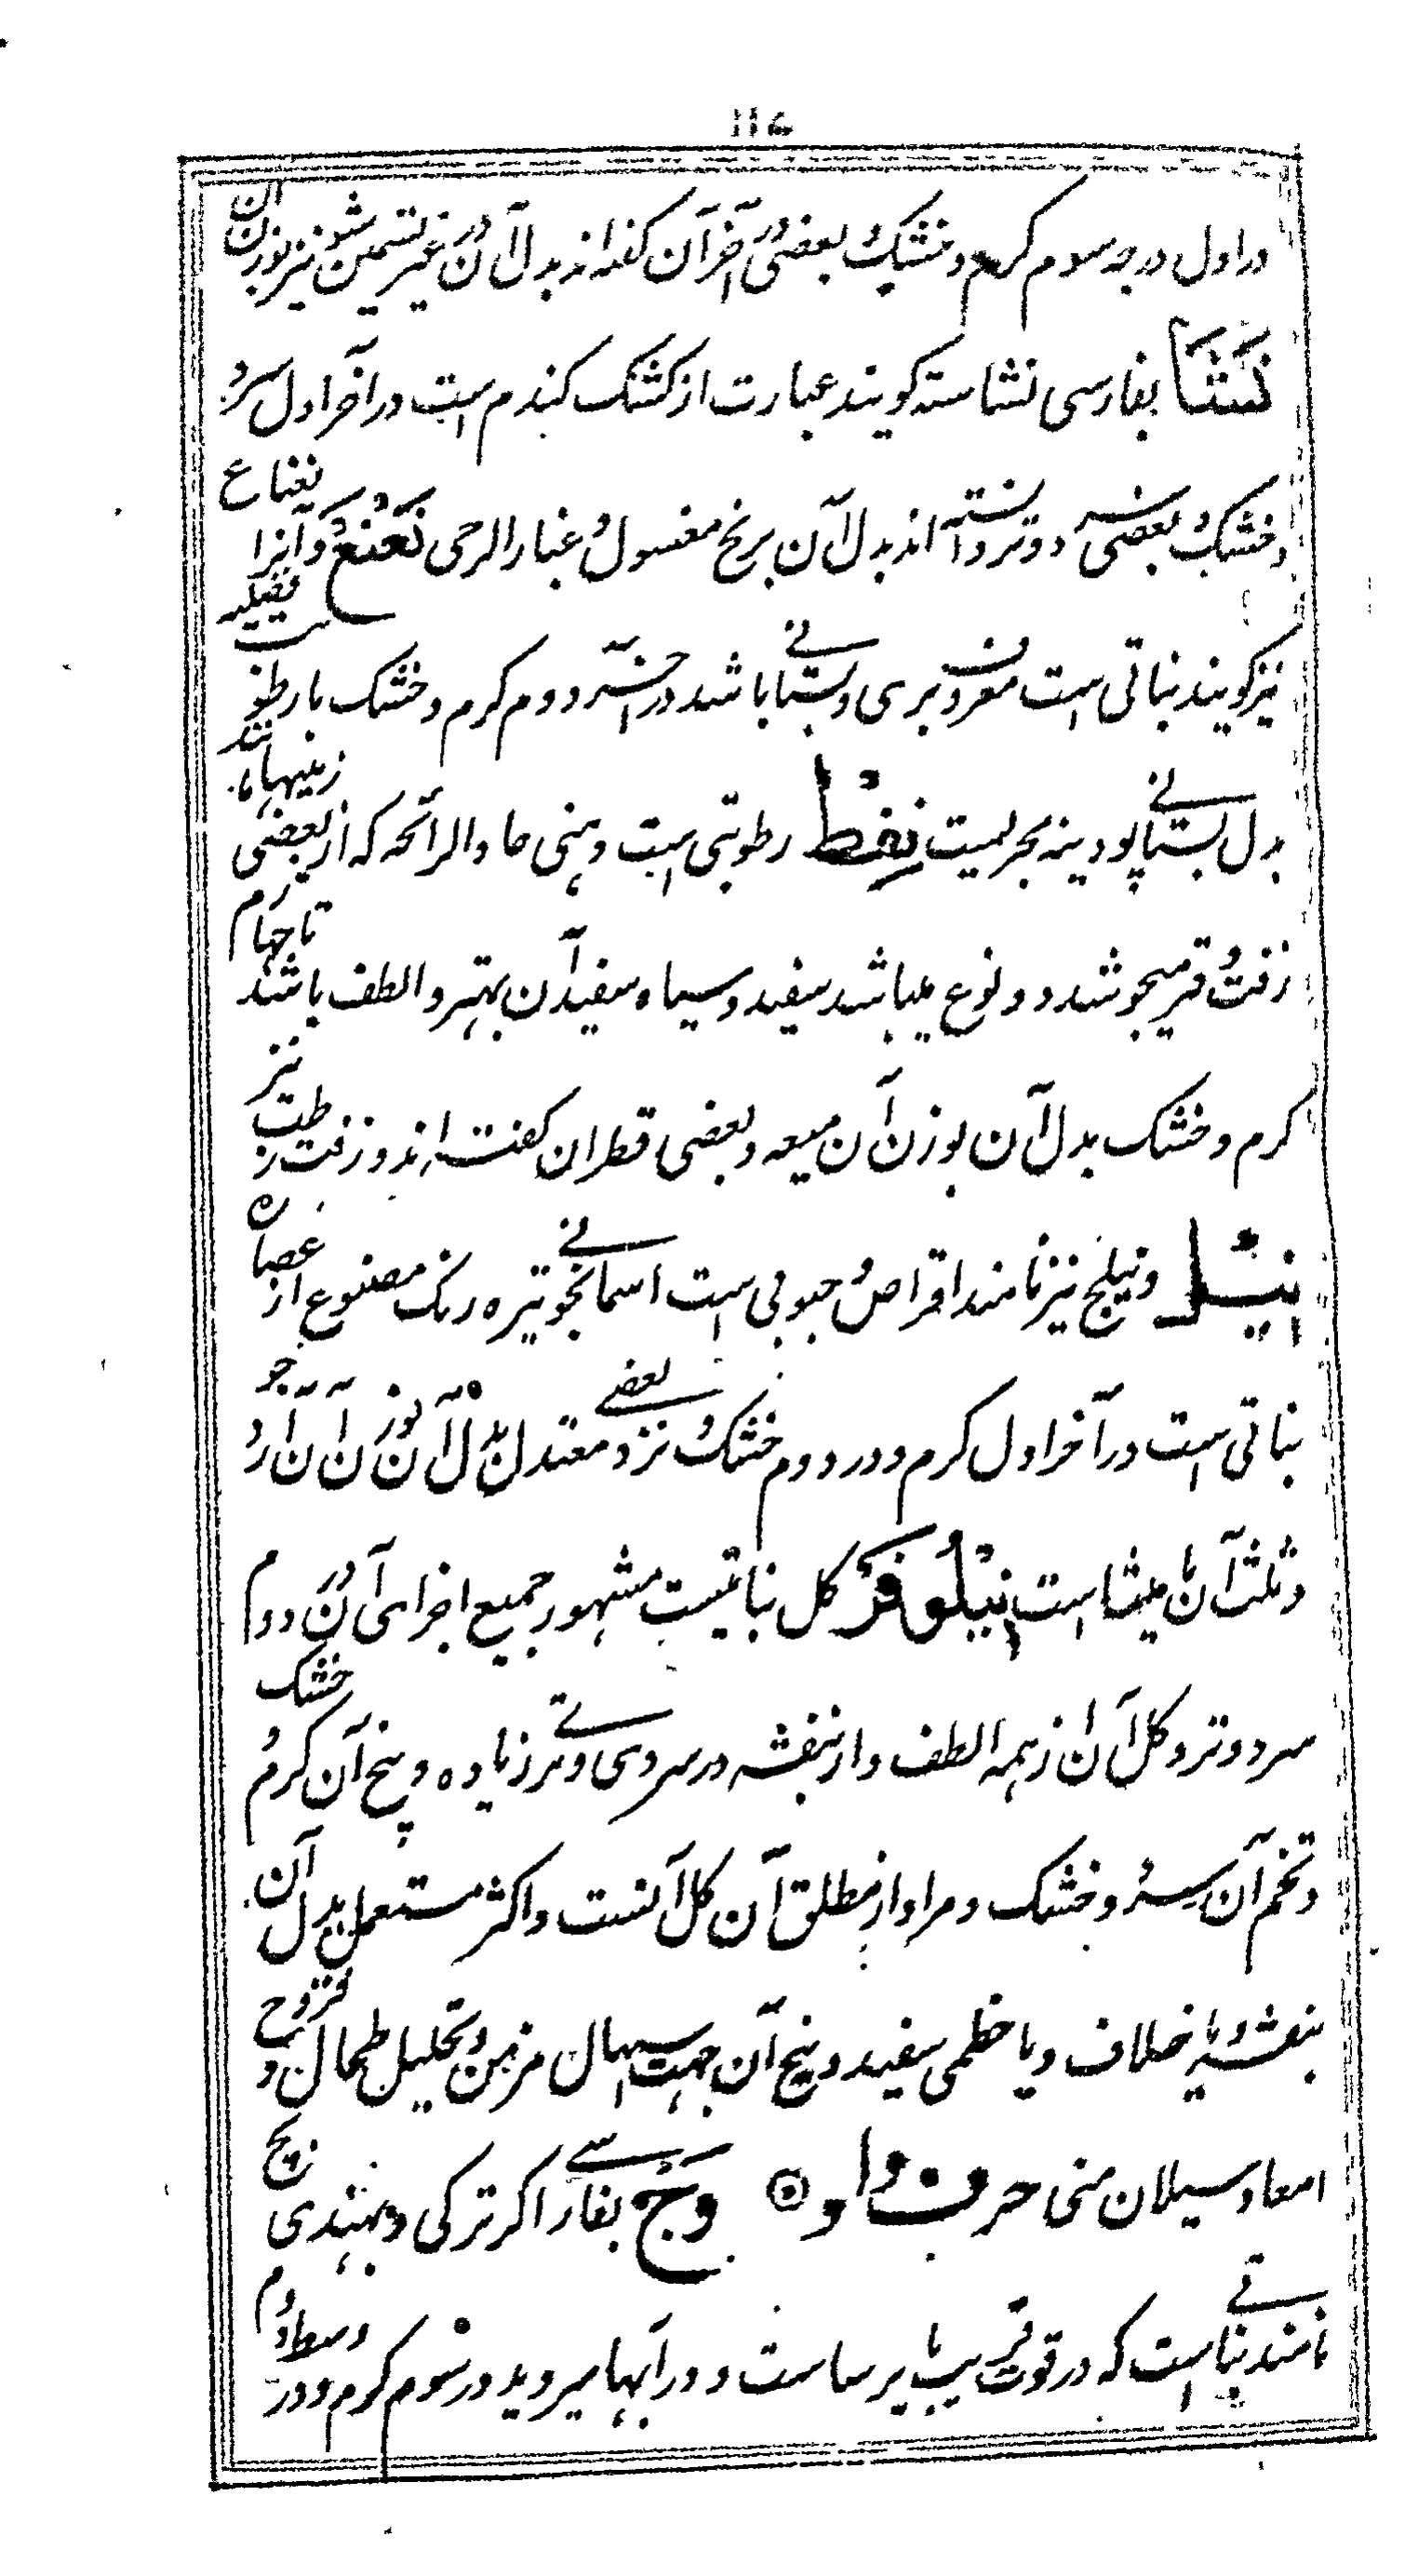 ۱۱۶
در اول درجه سوم گرم و خشک و بعضی در آخر آن گفته اند بدل آن در غیر تسمین شونیز بوزن آن
نَشَا بفارسی نشاسته کویند عبارت از کشک کندم است در آخر اول سرد
و خشک و بعضی سرد و تر دانسته اند بدل آن برنج مغسول و غبار الرحی نَعْنَعْ و آنرا نعناع
نیز کویند نباتی است معروف بری و بستانی باشد در آخر دوم کرم و خشک با رطوبت فضلیه
بدل بستانی پودینه بحریست نِفْط رطوبتی است دهنی حاد الرائحه که از بعضی زمینها مانند
زفت و قیر میجوشد دو نوع میباشد سفید و سیاه سفید آن بهتر و الطف باشد تا چهارم
کرم و خشک بدل آن بوزن آن میعه و بعضی قطران کفته اند و زفت رطب نیز
نِیْل و نیلج نیز نامند اقراص و حبوبی است اسمانجونی تیره رنک مصنوع از عصاره
نباتی است در آخر اول کرم و در دوم خشک و نزد بعضے معتدل بدل آن بوزن آن آن آرد جو
و ثلث آن مامیثا است نِیْلُوفَرْ کل نباتیست مشهور جمیع اجزای آن در دوم
سرد و تر و کل آن از همه الطف و از بنفشه در سردی و تری زیاده و بیخ آن کرم و خشک
و تخم آن سرد و خشک و مراد از مطلق آن کل آنست و اکثر مستعمل بدل آن
بنفشه و یا خلاف و یا خطمی سفید و بیخ آن جهت اسهال مزمن و تحلیل طحال و قروح
امعا و سیلان منی حرف واو ۞ وَجْ بفارسے اکر ترکی و بهندی بچ
نامند نباتی است که در قوت قریب با یرسا ست و در آبها میروید در سوم کرم و در وسط دوم